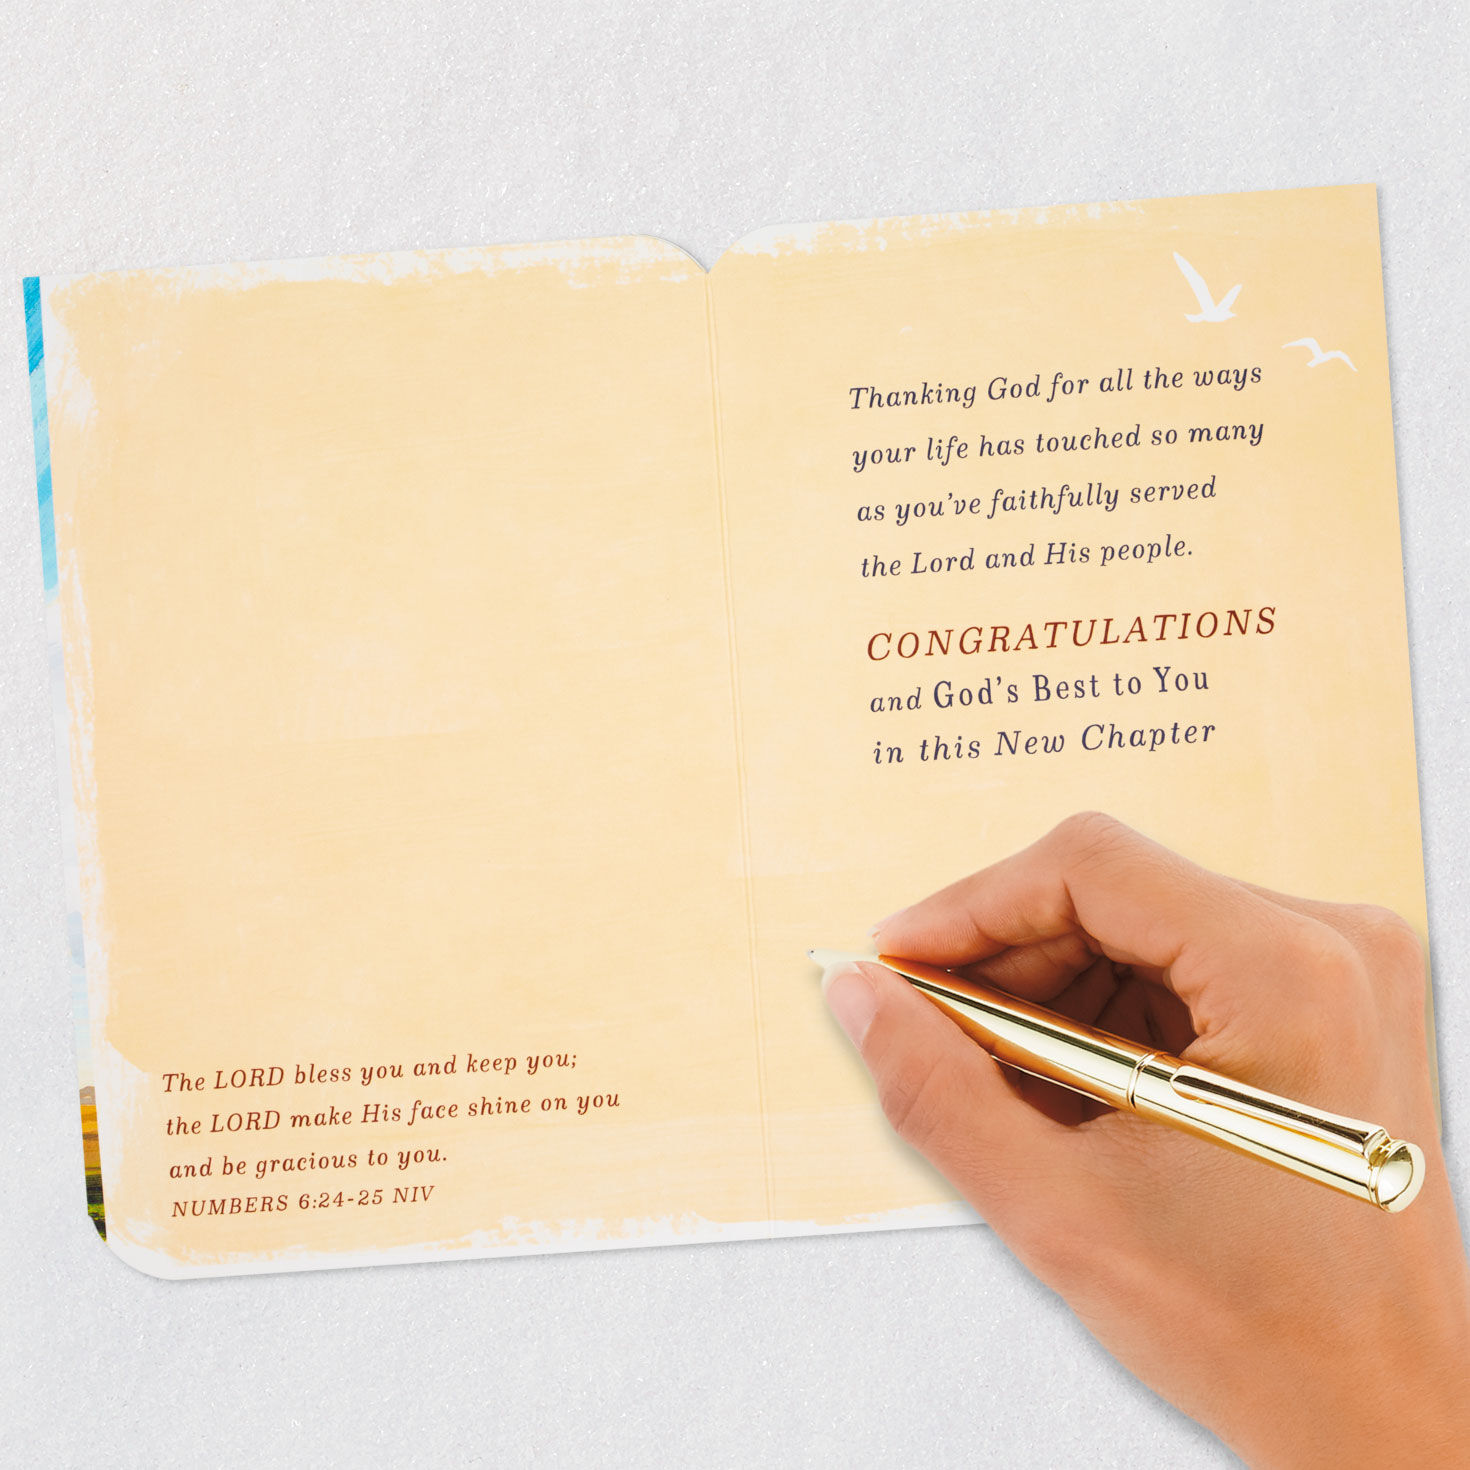 The LORD bless you and keep you;
the LORD make His face shine on you
and be gracious to you.
NUMBERS 6:24-25 NIV
Thanking God for all the ways
your life has touched so many
as you've faithfully served
the Lord and His people.
CONGRATULATIONS
and God's Best to You
in this New Chapter